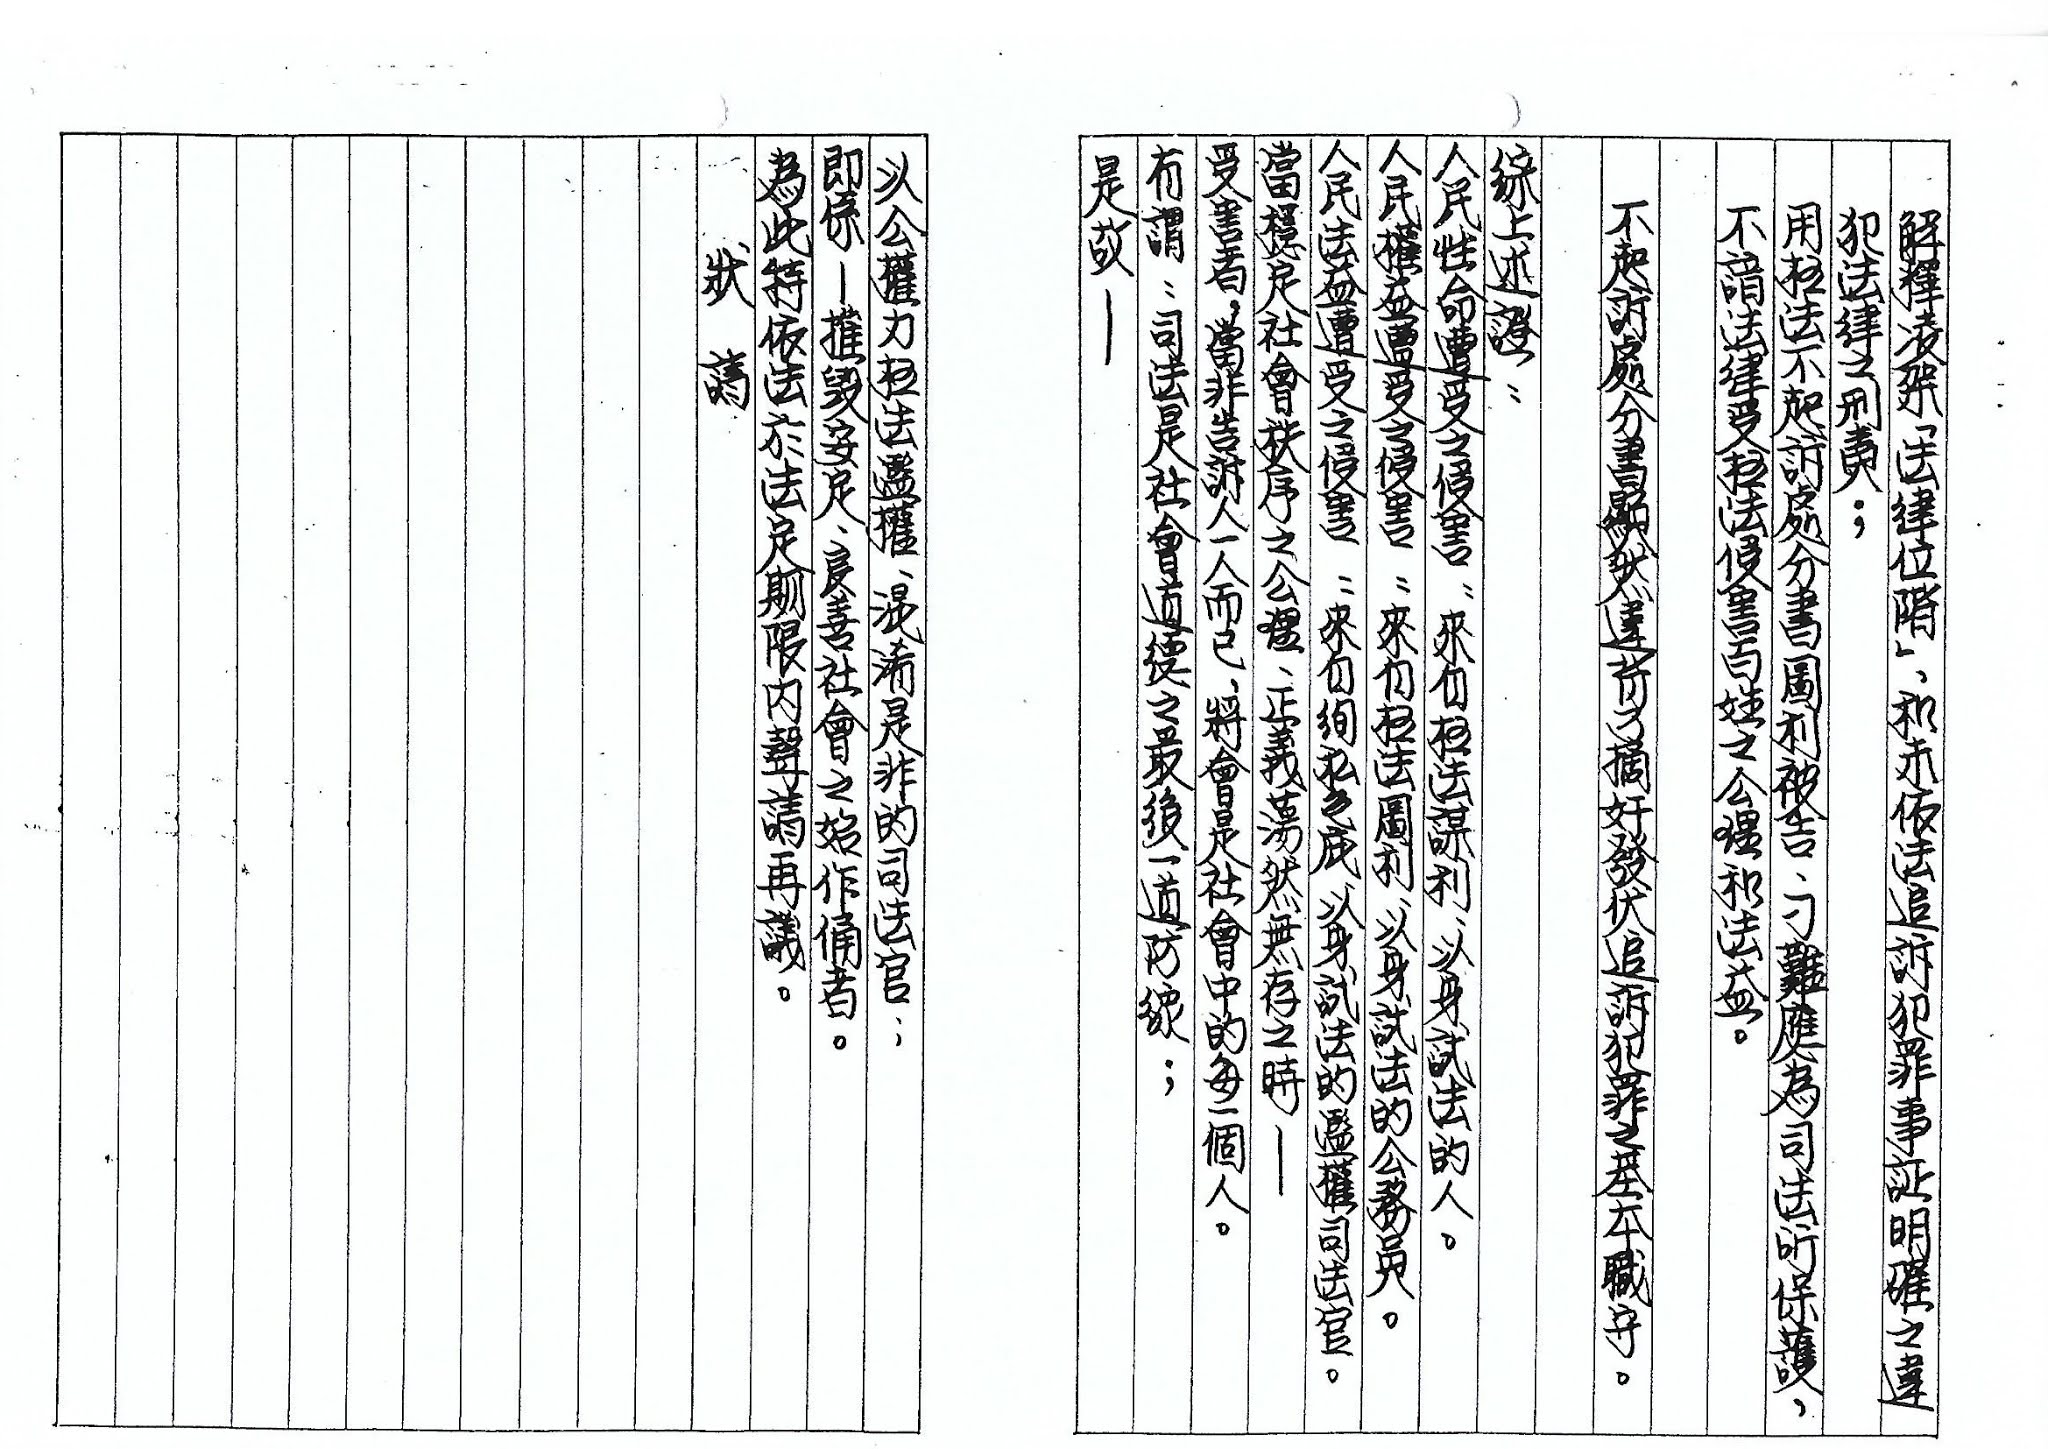 解釋凌架「法律位階」、和未依法追訴犯罪事証明確之違
犯法律之刑責；
用枉法不起訴處分書圖利被告、刁難應為司法所保護，
不諳法律受枉法侵害百姓之公理和法益。
不起訴處分書顯然違背了摘奸發伏追訴犯罪之基本職守。
綜上述證：
人民性命遭受之侵害：來自枉法謀利、以身試法的人。
人民權益遭受之侵害：來自枉法圖利、以身試法的公務員。
人民法益遭受之侵害：來自徇私包庇、以身試法的濫權司法官。
當穩定社會秩序之公理、正義蕩然無存之時—
受害者，當非告訴人一人而已、將會是社會中的每一個人。
有謂：司法是社會道德之最後一道防線；
是故—
以公權力枉法濫權、混淆是非的司法官；
即係—摧毀安定、良善社會之始作俑者。
為此特依法於法定期限內聲請再議。
狀 請